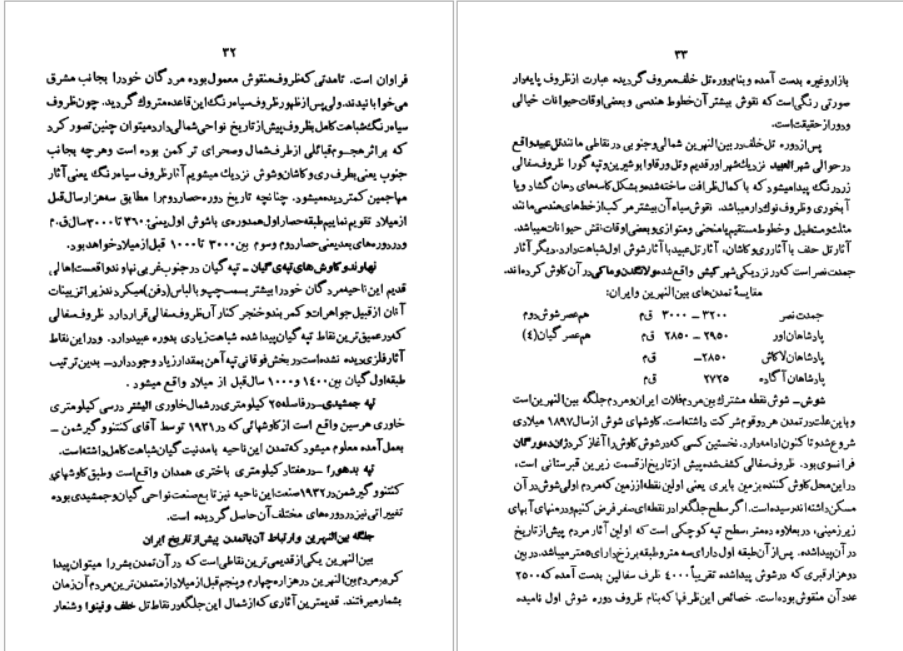 ۳۲
فراوان است. تامدتی که ظروف منقوش معمول بوده مردگان خودرا بجانب مشرق
می خوابانیدند. ولی پس از ظهور ظروف سیاه رنگ این قاعده متروک گردید. چون ظروف
سیاه رنگ شباهت کامل بظروف پیش از تاریخ نواحی شمالی دارد میتوان چنین تصور کرد
که براثر هجوم قبائلی از طرف شمال و صحرای ترکمن بوده است و هر چه بجانب
جنوب یعنی بطرف ری و کاشان و شوش نزدیک میشویم آثار ظروف سیاه رنگ یعنی آثار
مهاجمین کمتر دیده میشود. چنانچه تاریخ دوره حصار دوم را مطابق سه هزار سال قبل
از میلاد تقویم نماییم طبقه حصار اول همدوره ی باشوش اول یعنی: ۳۶۰۰ تا ۳۰۰۰ سال ق.م
و در دوره های بعد یعنی حصار دوم و سوم بین ۳۰۰۰ تا ۱۰۰۰ قبل از میلاد خواهد بود.
نهاوند و کاوش های تپه ی گیان ـ تپه گیان در جنوب غربی نهاوند واقعست اهالی
قدیم این ناحیه مردگان خودرا بیشتر بسمت چپ و بالباس (دفن) میکردند زیرا تزیینات
آنان از قبیل جواهرات و کمربند و خنجر کنار آن ظروف سفالی قرار دارد ظروف سفالی
که در عمیق ترین نقاط تپه گیان پیدا شده شباهت زیادی بدوره عبید دارد. و در این نقاط
آثار فلزی دیده نشده است در بخش فوقانی تپه آهن بمقدار زیاد وجود دارد ـ بدین ترتیب
طبقه اول گیان بین ۱۴۰۰ و ۱۰۰۰ سال قبل از میلاد واقع میشود .
تپه جمشیدی ـ در فاصله ۲۵ کیلومتری در شمال خاوری الیشتر در سی کیلومتری
خاوری هرسین واقع است از کاوشهائی که در ۱۹۳۱ توسط آقای کنتنو و گیرشمن ـ
بعمل آمده معلوم میشود که تمدن این ناحیه بامدنیت گیان شباهت کامل داشته است.
تپه بدهورا ـ در هفتاد کیلومتری باختری همدان واقع است و طبق کاوشهای
کنتنو و گیرشمن در ۱۹۳۲ صنعت این ناحیه نیز تابع صنعت نواحی گیان و جمشیدی بوده
تغییراتی نیز در دوره های مختلف آن حاصل گردیده است.
جلگه بین النهرین و ارتباط آن باتمدن پیش از تاریخ ایران
بین النهرین یکی از قدیمی ترین نقاطی است که در آن تمدن بشر را میتوان پیدا
کرد مردم بین النهرین در هزاره چهارم و پنجم قبل از میلاد از متمدن ترین مردم آن زمان
بشمار میرفتند. قدیمترین آثاری که از شمال این جلگه در نقاط تل خلف و نینوا وشنمار
۳۳
بازار وغیره بدست آمده و بنام دوره تل خلف معروف گردیده عبارت از ظروف پایه دار
صورتی رنگی است که نقوش بیشتر آن خطوط هندسی و بعضی اوقات حیوانات خیالی
و دور از حقیقت است.
پس از دوره تل خلف در بین النهرین شمالی و جنوبی در نقاطی مانند تل عبید واقع
در حوالی شهر العبید نزدیک شهر اور قدیم و تل ورقا و ابوشیرین و تپه گورا ظروف سفالی
زرد رنگ پیدا میشود که با کمال ظرافت ساخته شده و بشکل کاسه های دهان گشاد و یا
آبخوری و ظروف نوک دار میباشد. نقوش سیاه آن بیشتر مرکب از خط های هندسی مانند
مثلث و مستطیل و خطوط مستقیم یا منحنی و متوازی و بعضی اوقات نقش حیوانات میباشد.
آثار تل حلف با آثار ری و کاشان، آثار تل عبید با آثار شوش اول شباهت دارد. دیگر آثار
جمدت نصر است که در نزدیکی شهر کیش واقع شده و لانگدن و ماکی در آن کاوش کرده اند.
مقایسهٔ تمدن های بین النهرین و ایران:
جمدت نصر ۳۲۰۰ ـ ۳۰۰۰ ق م هم عصر شوش دوم
پادشاهان اور ۲۹۵۰ ـ ۲۸۵۰ ق م هم عصر گیان (۴)
پادشاهان لاگاش ۲۸۵۰ـ ق م
پادشاهان آگاده ۲۷۲۵ ق م
شوش ـ شوش نقطه مشترک بین مردم فلات ایران و مردم جلگه بین النهرین است
و باین علت در تمدن هر دو قوم شرکت داشته است. کاوشهای شوش از سال ۱۸۹۷ میلادی
شروع شده تا کنون ادامه دارد. نخستین کسی که در شوش کاوش را آغاز کرد ژان دمورگان
فرانسوی بود. ظروف سفالی کشف شده پیش از تاریخ از قسمت زیرین قبرستانی است،
در این محل کاوش کننده بزمین بایری یعنی اولین نقطه از زمین که مردم اولی شوش در آن
مسکن داشته اند رسیده است. اگر سطح جلگه را در نقطه ای صفر فرض کنیم و در منهای آبهای
زیرزمینی، در بعلاوه ده متر، سطح تپه کوچکی است که اولین آثار مردم پیش از تاریخ
در آن پیدا شده. پس از آن طبقه اول دارای سه متر و طبقه برزخ دارای ۵ متر میباشد. در بین
دو هزار قبری که در شوش پیدا شده تقریباً ۴۰۰۰ ظرف سفالین بدست آمده که ۲۵۰۰
عدد آن منقوش بوده است. خصائص این ظرفها که بنام ظروف دوره شوش اول نامیده